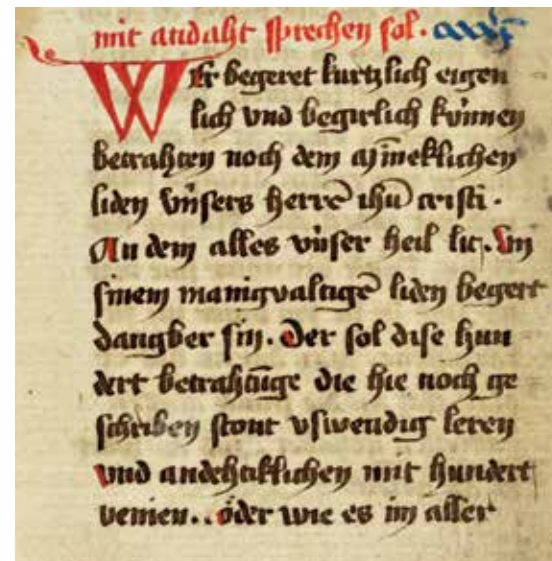 mit andaht sprechen sol. xxxj
WEr begeret kurtzlich eigen
lich vnd begirlich kúnnen
betrahten noch dem mīneklichen
liden vnsers herrē ihū cristi.
An dem alles vnser heil lit. Vn
sinem manigualtigē liden begert
dangber sin. Der sol dise hun
dert betrahtūge die hie noch ge
schriben stont vswendig leren
vnd andehtklichen mit hundert
venien.. oder wie es im aller